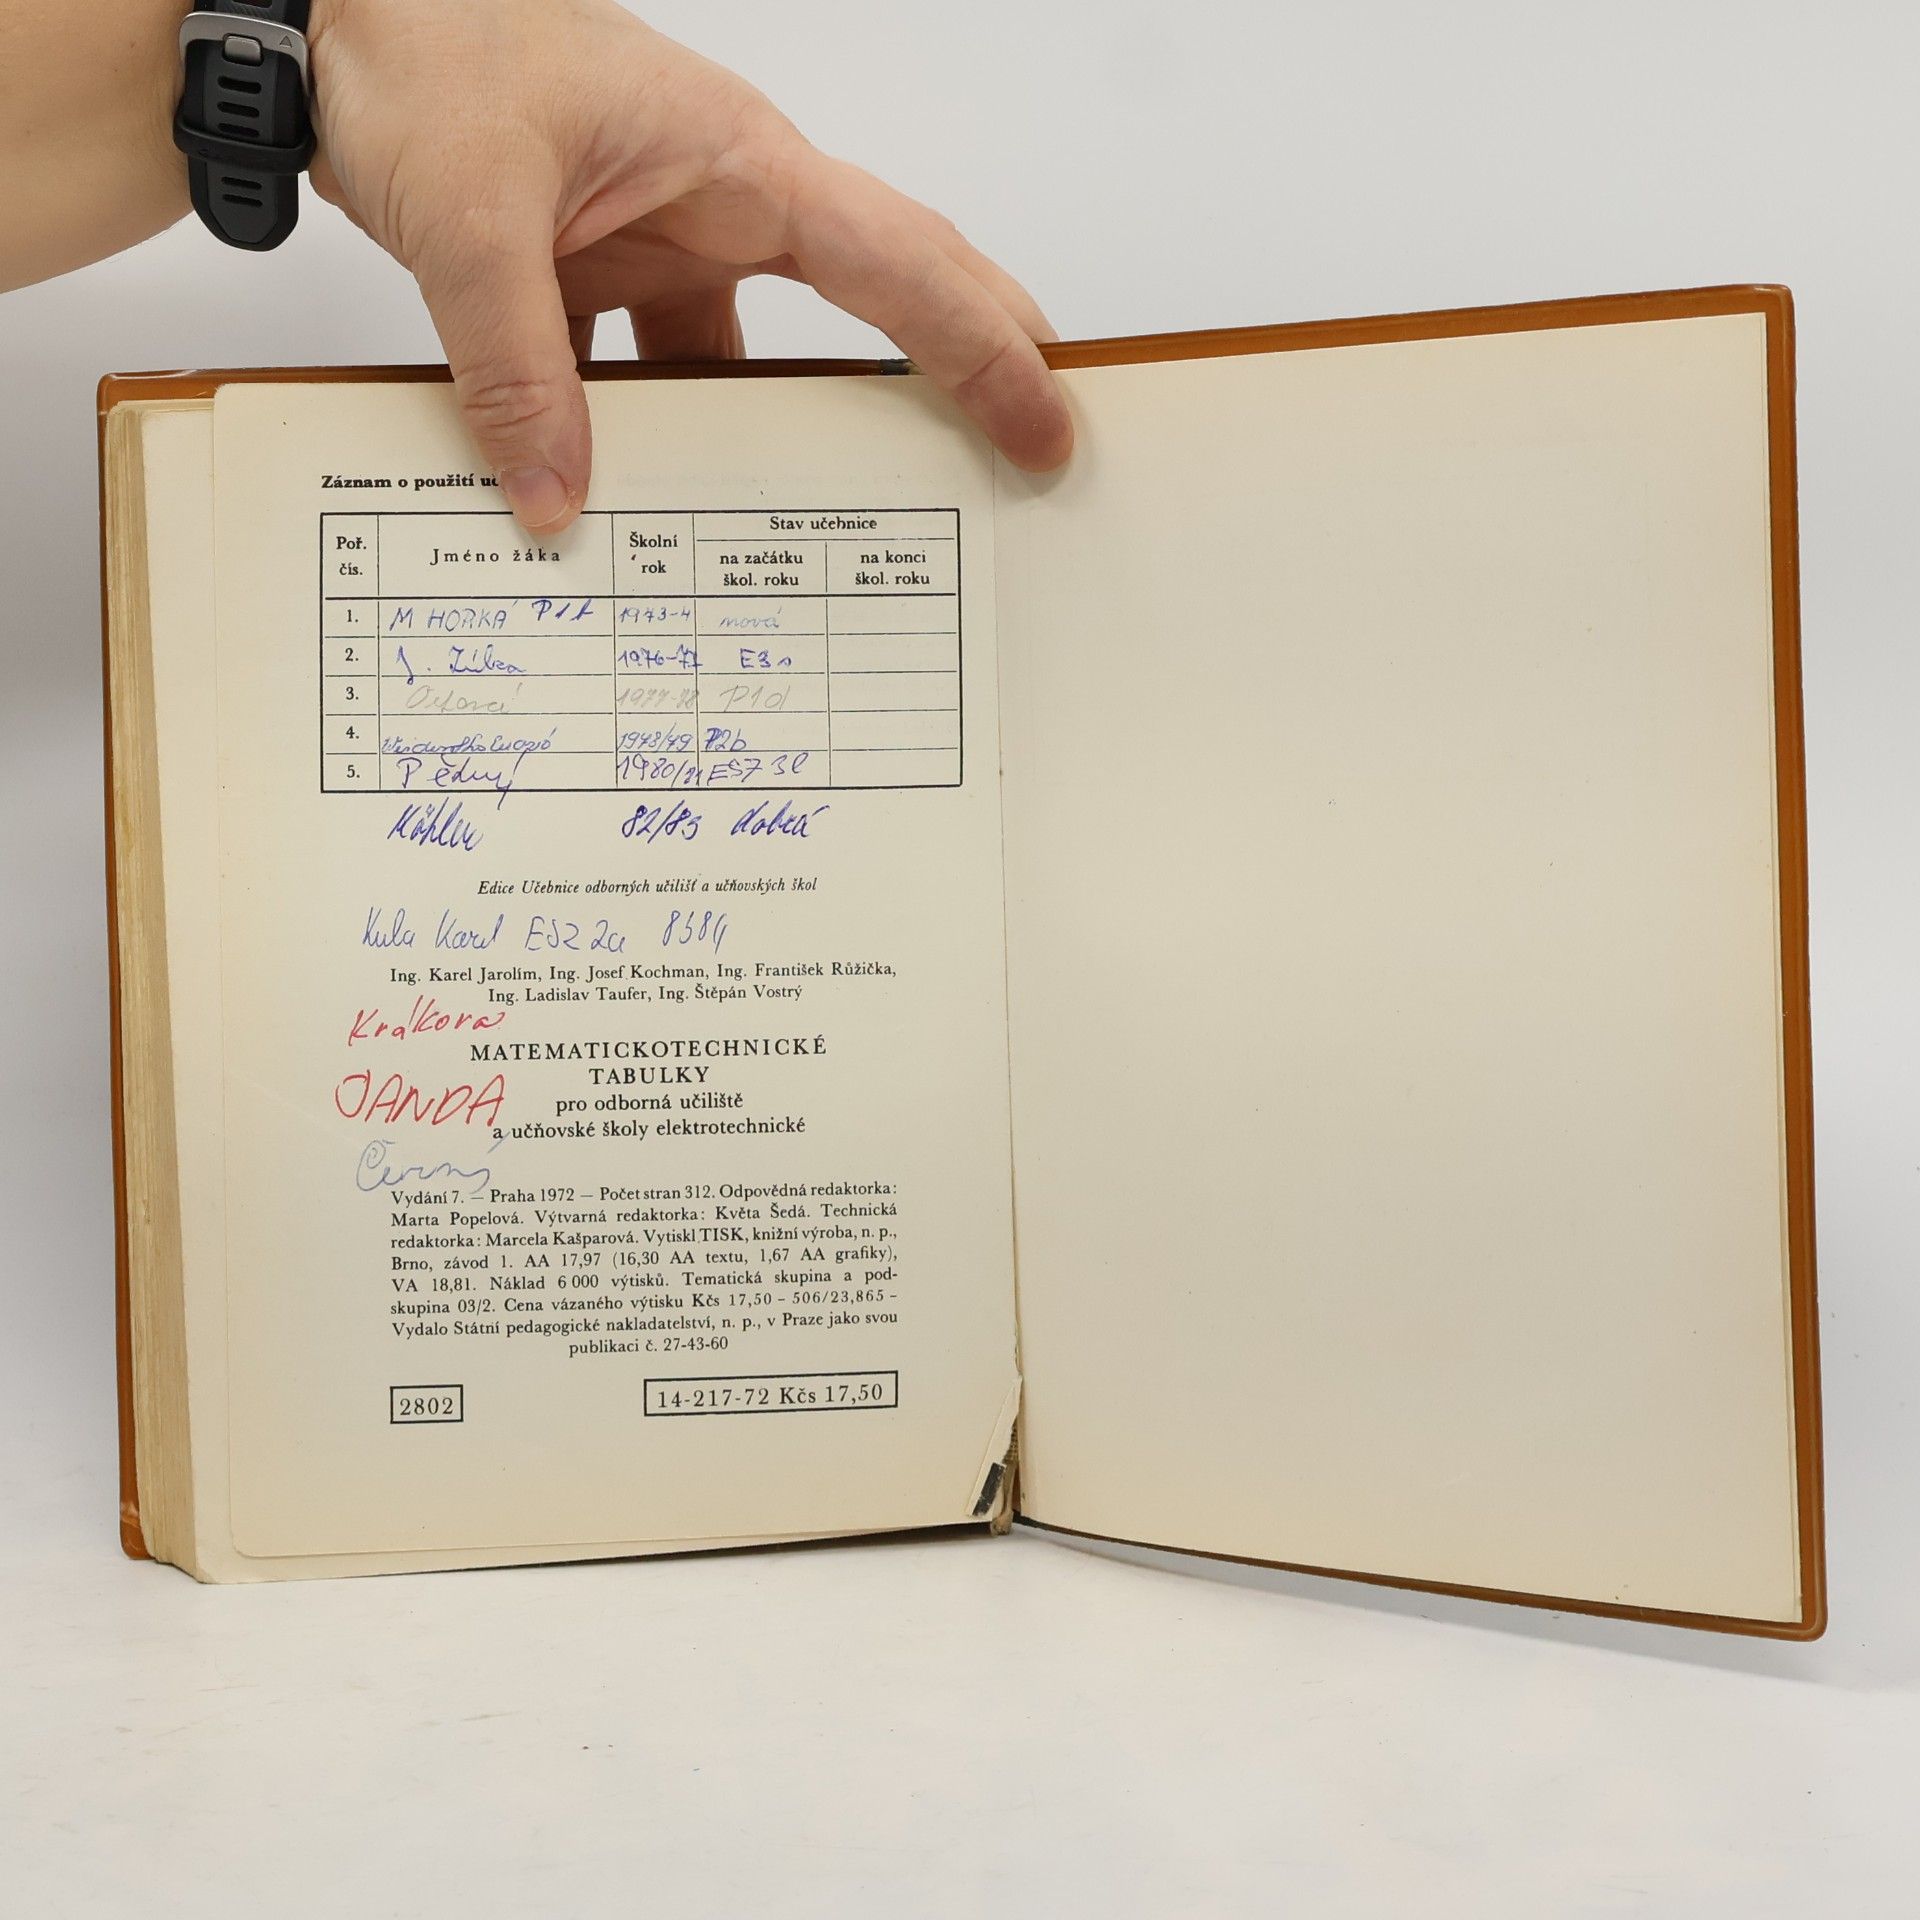 Záznam o použití
Poř. čís.
Jméno žáka
Školní rok
Stav učebnice
na začátku škol. roku
na konci škol. roku
1. M HORKÁ P1f 1973-4 nová
2. J. 1976-77
3. 1977-78 P1d
4. 1978/79
5. 1980/81
Köhler 82/83 dobrá
Edice Učebnice odborných učilišť a učňovských škol
Kula Karel 2a 8384
Ing. Karel Jarolím, Ing. Josef Kochman, Ing. František Růžička,
Ing. Ladislav Taufer, Ing. Štěpán Vostrý
Krákora
MATEMATICKOTECHNICKÉ
TABULKY
JANDA
pro odborná učiliště
a učňovské školy elektrotechnické
Černý
Vydání 7. — Praha 1972 — Počet stran 312. Odpovědná redaktorka:
Marta Popelová. Výtvarná redaktorka: Květa Šedá. Technická
redaktorka: Marcela Kašparová. Vytiskl TISK, knižní výroba, n. p.,
Brno, závod 1. AA 17,97 (16,30 AA textu, 1,67 AA grafiky),
VA 18,81. Náklad 6 000 výtisků. Tematická skupina a pod-
skupina 03/2. Cena vázaného výtisku Kčs 17,50 - 506/23,865 -
Vydalo Státní pedagogické nakladatelství, n. p., v Praze jako svou
publikaci č. 27-43-60
2802
14-217-72 Kčs 17,50